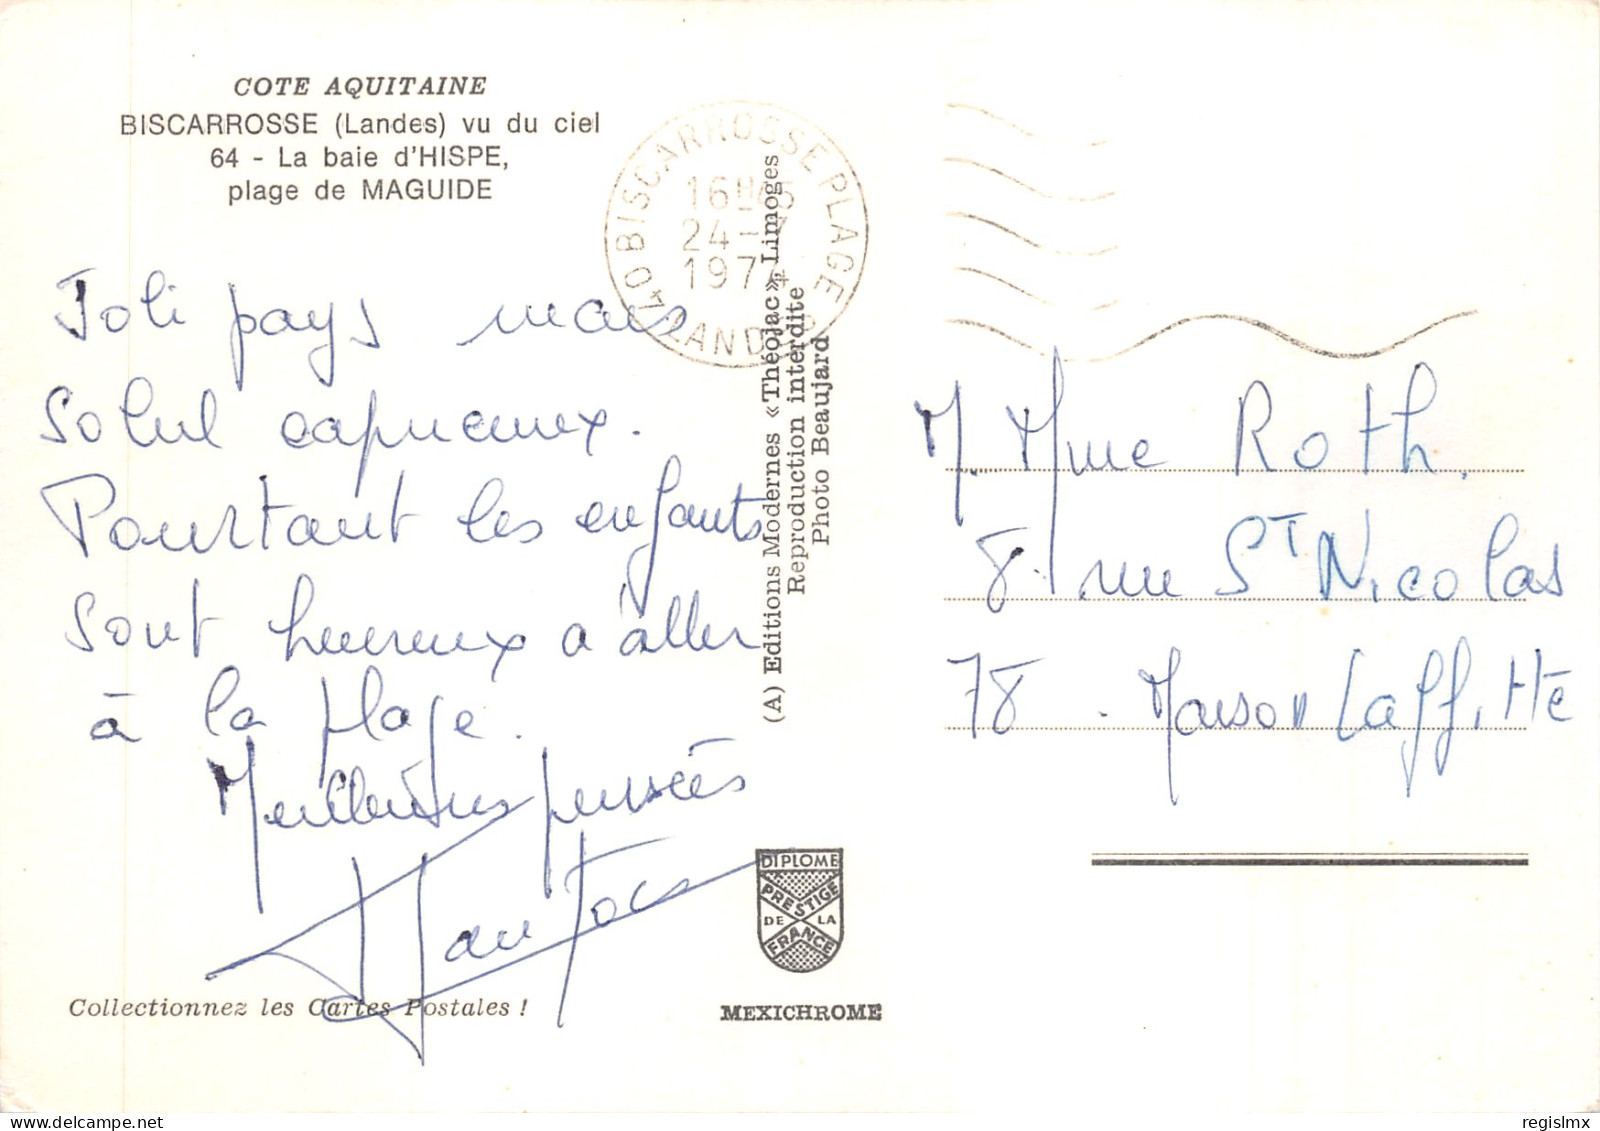 COTE AQUITAINE
BISCARROSSE (Landes) vu du ciel
64 - La baie d'HISPE,
plage de MAGUIDE
40 BISCARROSSE PLAGE
LANDES
16H45
24-7
1974
Joli pays mais
Soleil capricieux.
Pourtant les enfants
sont heureux d'aller
à la plage.
Meilleures pensées
(A) Editions Modernes «Théojac», Limoges
Reproduction interdite
Photo Beaujard
Collectionnez les Cartes Postales !
DIPLOME
PRESTIGE
DE LA
FRANCE
MEXICHROME
M. Mme Roth.
8. rue ST Nicolas
78. Maison Laffitte
regislmx